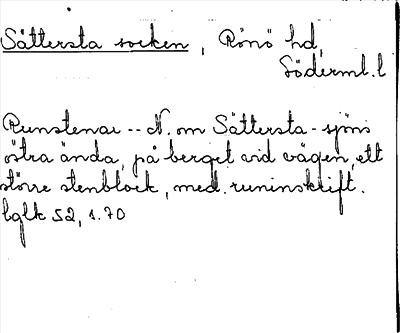 Sättersta socken, Rönö hd,
Söderml. l
Runstenar -- N. om Sättersta-sjöns
östra ända, på berget vid vägen, ett
större stenblock, med runinskrift.
lglk 52, s. 70